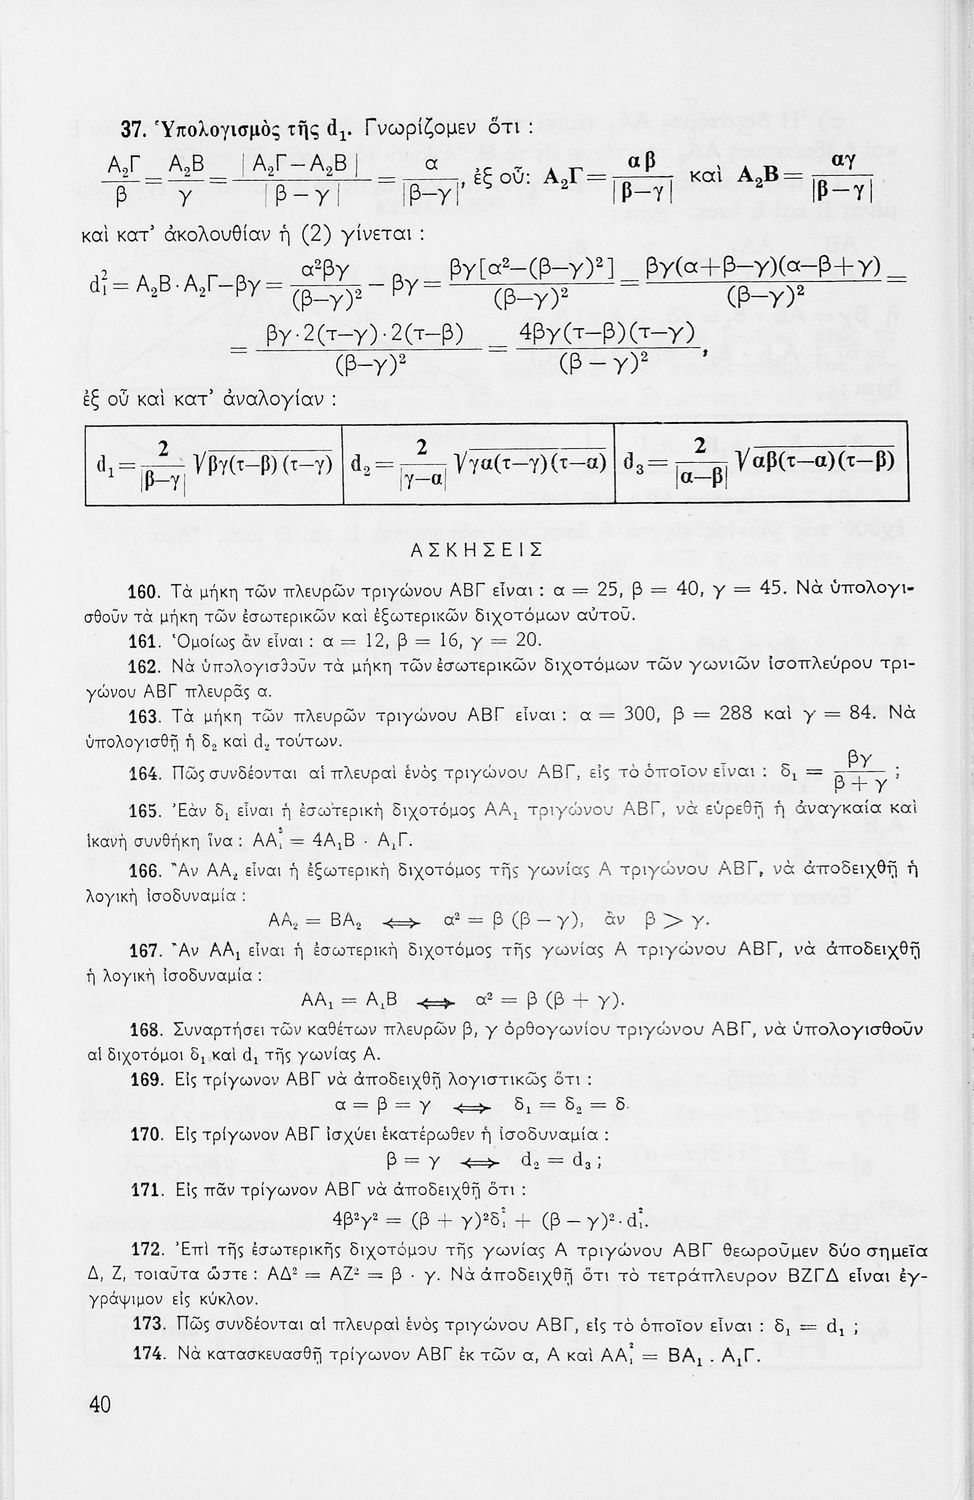 37. Ὑπολογισμὸς τῆς d₁. Γνωρίζομεν ὅτι :
Α₂Γ/β = Α₂Β/γ = |Α₂Γ–Α₂Β|/|β–γ| = α/|β–γ|, ἐξ οὗ: Α₂Γ = αβ/|β–γ| καὶ Α₂Β = αγ/|β–γ|
καὶ κατ’ ἀκολουθίαν ἡ (2) γίνεται :
d₁² = Α₂Β·Α₂Γ–βγ = α²βγ/(β–γ)² – βγ = βγ[α²–(β–γ)²]/(β–γ)² = βγ(α+β–γ)(α–β+γ)/(β–γ)² =
= βγ·2(τ–γ)·2(τ–β)/(β–γ)² = 4βγ(τ–β)(τ–γ)/(β–γ)²,
ἐξ οὗ καὶ κατ’ ἀναλογίαν :
d₁ = 2/|β–γ| √βγ(τ–β)(τ–γ) d₂ = 2/|γ–α| √γα(τ–γ)(τ–α) d₃ = 2/|α–β| √αβ(τ–α)(τ–β)
ΑΣΚΗΣΕΙΣ
160. Τὰ μήκη τῶν πλευρῶν τριγώνου ΑΒΓ εἶναι : α = 25, β = 40, γ = 45. Νὰ ὑπολογι-
σθοῦν τὰ μήκη τῶν ἐσωτερικῶν καὶ ἐξωτερικῶν διχοτόμων αὐτοῦ.
161. Ὁμοίως ἂν εἶναι : α = 12, β = 16, γ = 20.
162. Νὰ ὑπολογισθοῦν τὰ μήκη τῶν ἐσωτερικῶν διχοτόμων τῶν γωνιῶν ἰσοπλεύρου τρι-
γώνου ΑΒΓ πλευρᾶς α.
163. Τὰ μήκη τῶν πλευρῶν τριγώνου ΑΒΓ εἶναι : α = 300, β = 288 καὶ γ = 84. Νὰ
ὑπολογισθῇ ἡ δ₂ καὶ d₂ τούτων.
164. Πῶς συνδέονται αἱ πλευραὶ ἑνὸς τριγώνου ΑΒΓ, εἰς τὸ ὁποῖον εἶναι : δ₁ = βγ/(β + γ) ;
165. Ἐὰν δ₁ εἶναι ἡ ἐσωτερικὴ διχοτόμος ΑΑ₁ τριγώνου ΑΒΓ, νὰ εὑρεθῇ ἡ ἀναγκαία καὶ
ἱκανὴ συνθήκη ἵνα : ΑΑ₁² = 4Α₁Β · Α₁Γ.
166. Ἂν ΑΑ₂ εἶναι ἡ ἐξωτερικὴ διχοτόμος τῆς γωνίας Α τριγώνου ΑΒΓ, νὰ ἀποδειχθῇ ἡ
λογικὴ ἰσοδυναμία :
ΑΑ₂ = ΒΑ₂ ⟺ α² = β (β – γ), ἂν β > γ.
167. Ἂν ΑΑ₁ εἶναι ἡ ἐσωτερικὴ διχοτόμος τῆς γωνίας Α τριγώνου ΑΒΓ, νὰ ἀποδειχθῇ
ἡ λογικὴ ἰσοδυναμία :
ΑΑ₁ = Α₁Β ⟺ α² = β (β + γ).
168. Συναρτήσει τῶν καθέτων πλευρῶν β, γ ὀρθογωνίου τριγώνου ΑΒΓ, νὰ ὑπολογισθοῦν
αἱ διχοτόμοι δ₁ καὶ d₁ τῆς γωνίας Α.
169. Εἰς τρίγωνον ΑΒΓ νὰ ἀποδειχθῇ λογιστικῶς ὅτι :
α = β = γ ⟺ δ₁ = δ₂ = δ.
170. Εἰς τρίγωνον ΑΒΓ ἰσχύει ἑκατέρωθεν ἡ ἰσοδυναμία :
β = γ ⟺ d₂ = d₃ ;
171. Εἰς πᾶν τρίγωνον ΑΒΓ νὰ ἀποδειχθῇ ὅτι :
4β²γ² = (β + γ)²δ₁² + (β – γ)²·d₁².
172. Ἐπὶ τῆς ἐσωτερικῆς διχοτόμου τῆς γωνίας Α τριγώνου ΑΒΓ θεωροῦμεν δύο σημεῖα
Δ, Ζ, τοιαῦτα ὥστε : ΑΔ² = ΑΖ² = β · γ. Νὰ ἀποδειχθῇ ὅτι τὸ τετράπλευρον ΒΖΓΔ εἶναι ἐγ-
γράψιμον εἰς κύκλον.
173. Πῶς συνδέονται αἱ πλευραὶ ἑνὸς τριγώνου ΑΒΓ, εἰς τὸ ὁποῖον εἶναι : δ₁ = d₁ ;
174. Νὰ κατασκευασθῇ τρίγωνον ΑΒΓ ἐκ τῶν α, Α καὶ ΑΑ₁² = ΒΑ₁ . Α₁Γ.
40